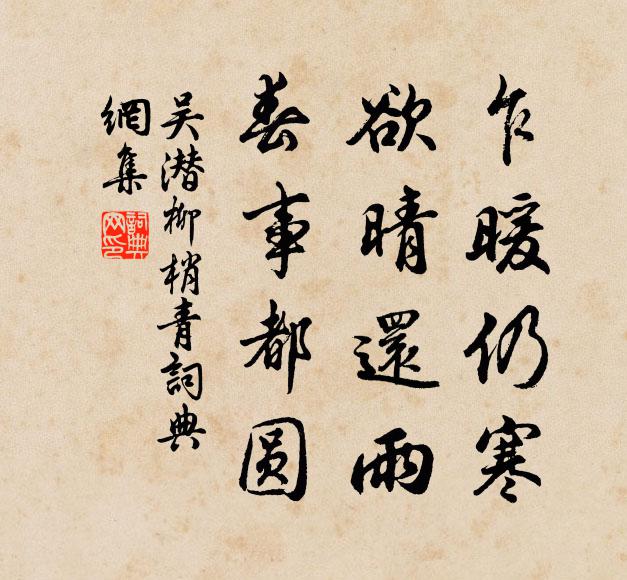 乍暖仍寒
欲晴還雨
春事都圆
吴潜柳梢青詞典
網集
詞典网印